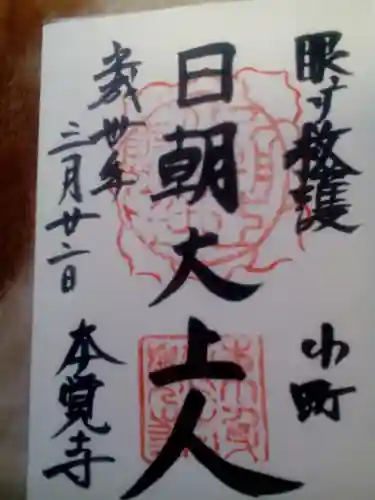 眼守救護
小町
日朝大上人
平成丗年
三月廿二日
本覚寺